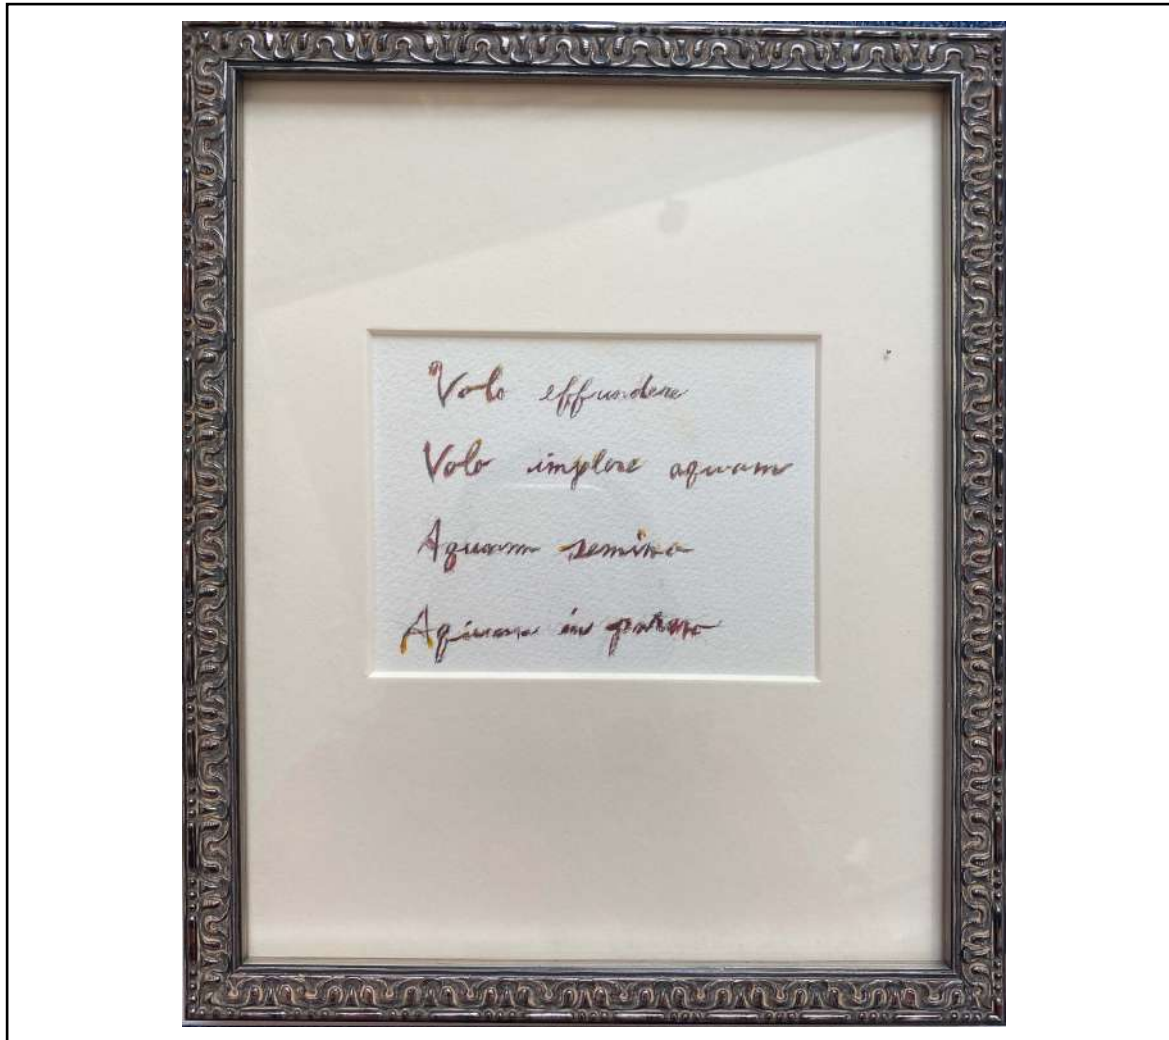 Volo effundere
Volo implere aquam
Aquam semina
Aquam in